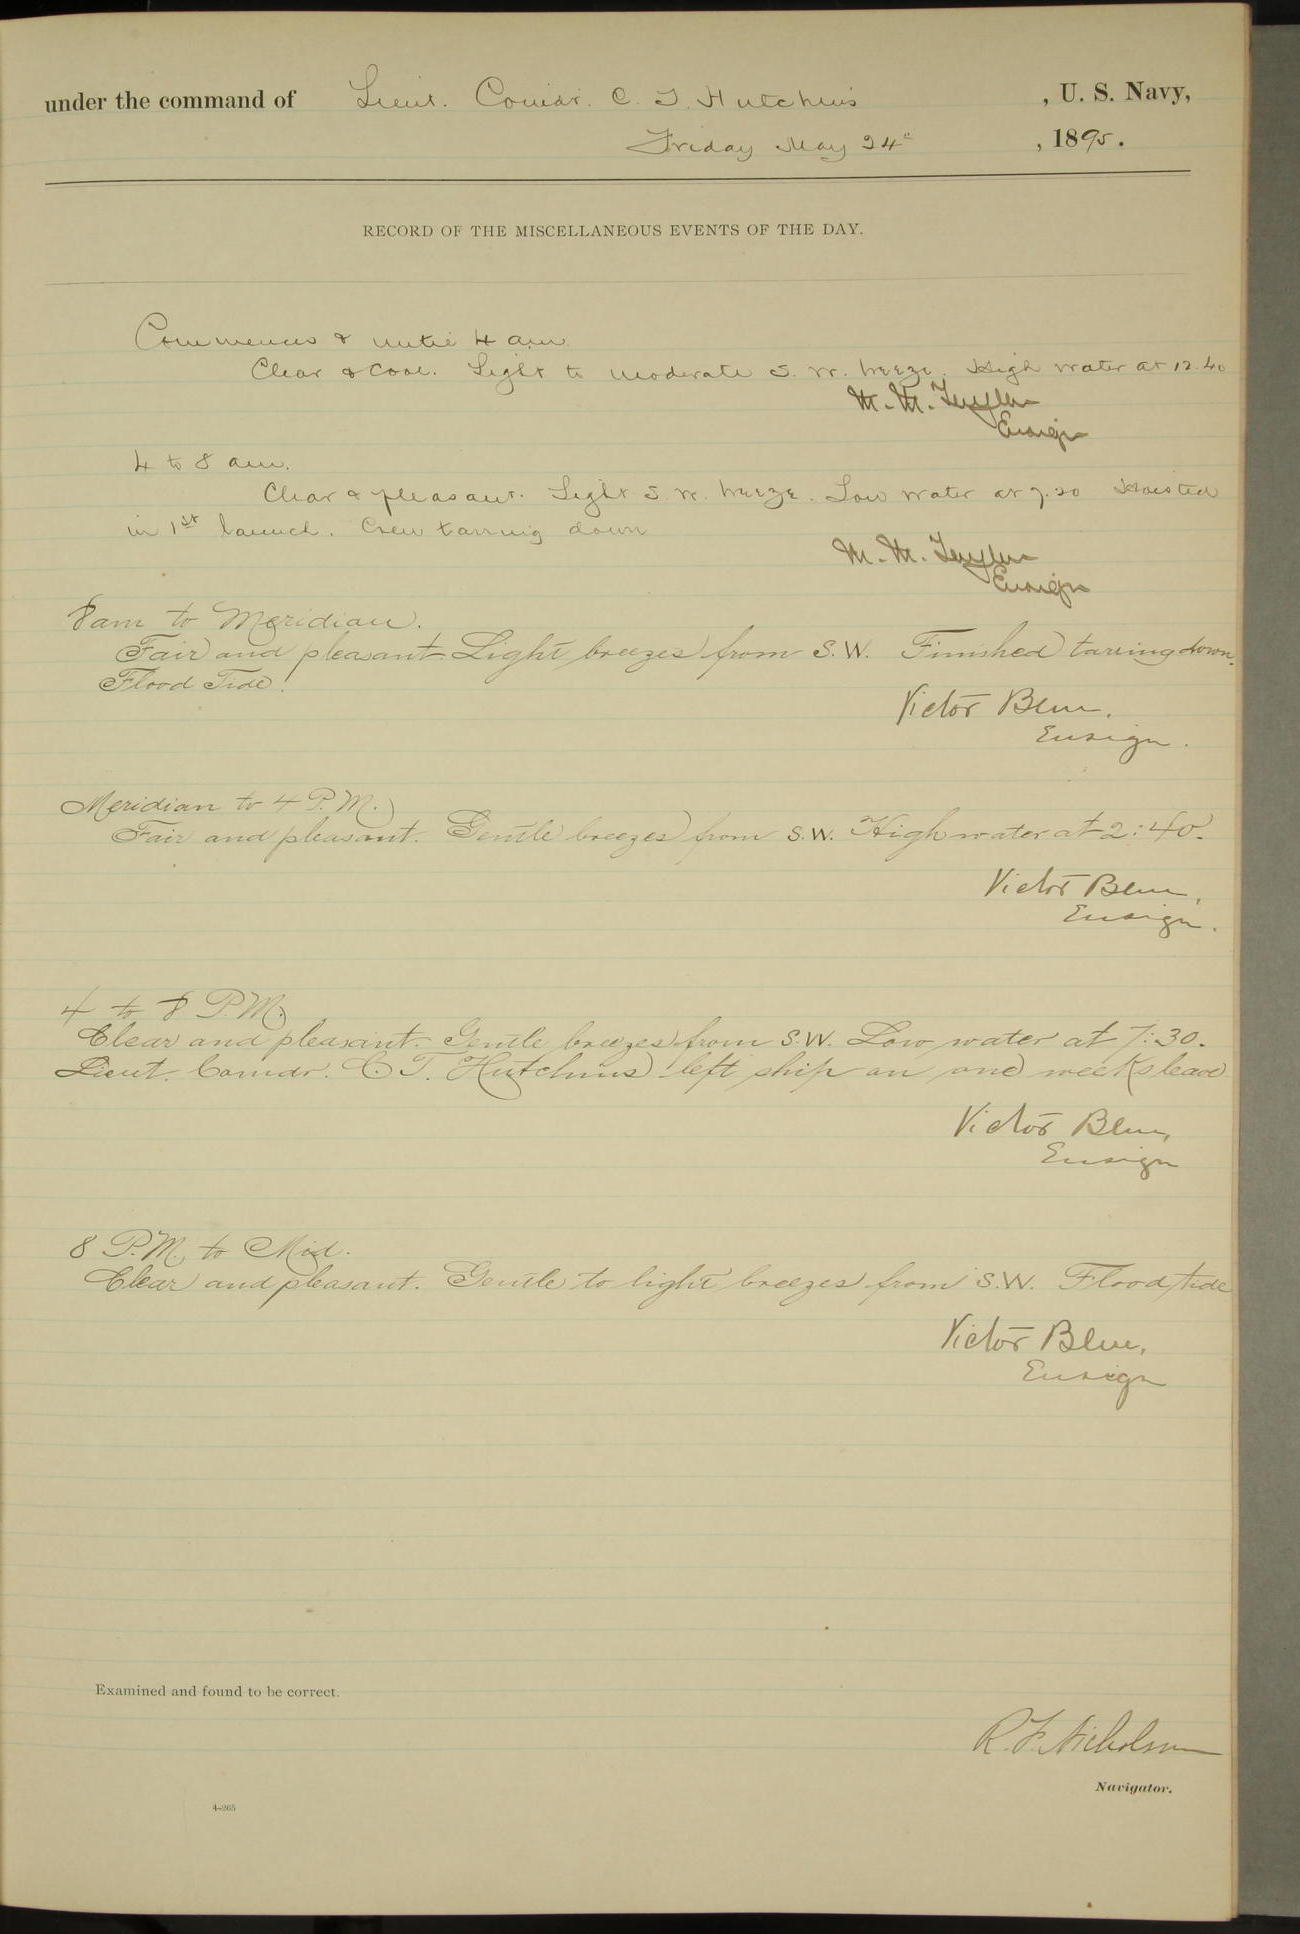 under the command of Lieut. Comdr. C. T. Hutchins , U. S. Navy,
Friday May 24" , 1895.
RECORD OF THE MISCELLANEOUS EVENTS OF THE DAY.
Commences & until 4 am.
Clear & Cool. Light to moderate S. W. breeze. High water at 12.40
M. M. Taylor
Ensign
4 to 8 am.
Clear & pleasant. Light S. W. breeze. Low water at 7.20 Hoisted
in 1st launch. Crew tarring down
M. M. Taylor
Ensign
8 am to Meridian.
Fair and pleasant Light breezes from S.W. Finished tarring down.
Flood Tide.
Victor Blue.
Ensign.
Meridian to 4 P.M.
Fair and pleasant. Gentle breezes from S.W. High water at 2:40.
Victor Blue,
Ensign.
4 to 8 P.M.
Clear and pleasant. Gentle breezes from S.W. Low water at 7:30.
Lieut. Comdr. C. T. Hutchins left ship on one weeks leave
Victor Blue,
Ensign
8 P.M. to Mid.
Clear and pleasant. Gentle to light breezes from S.W. Flood tide
Victor Blue,
Ensign
Examined and found to be correct.
R. F. Nicholson
Navigator.
4-265